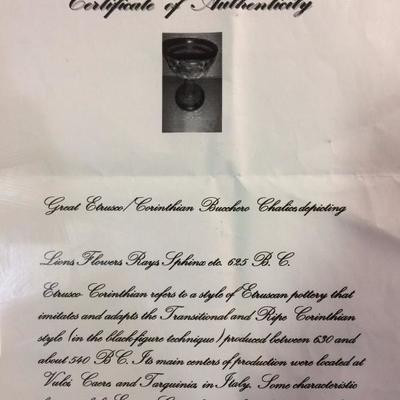 Certificate of Authenticity
Great Etrusco/Corinthian Bucchero Chalice, depicting
Lions Flowers Rays Sphinx etc. 625 B.C.
Etrusco Corinthian refers to a style of Etruscan pottery that
imitates and adapts the Transitional and Ripe Corinthian
style (in the black-figure technique) produced between 630 and
about 540 B.C. Its main centers of production were located at
Vulci Caere and Tarquinia in Italy. Some characteristic